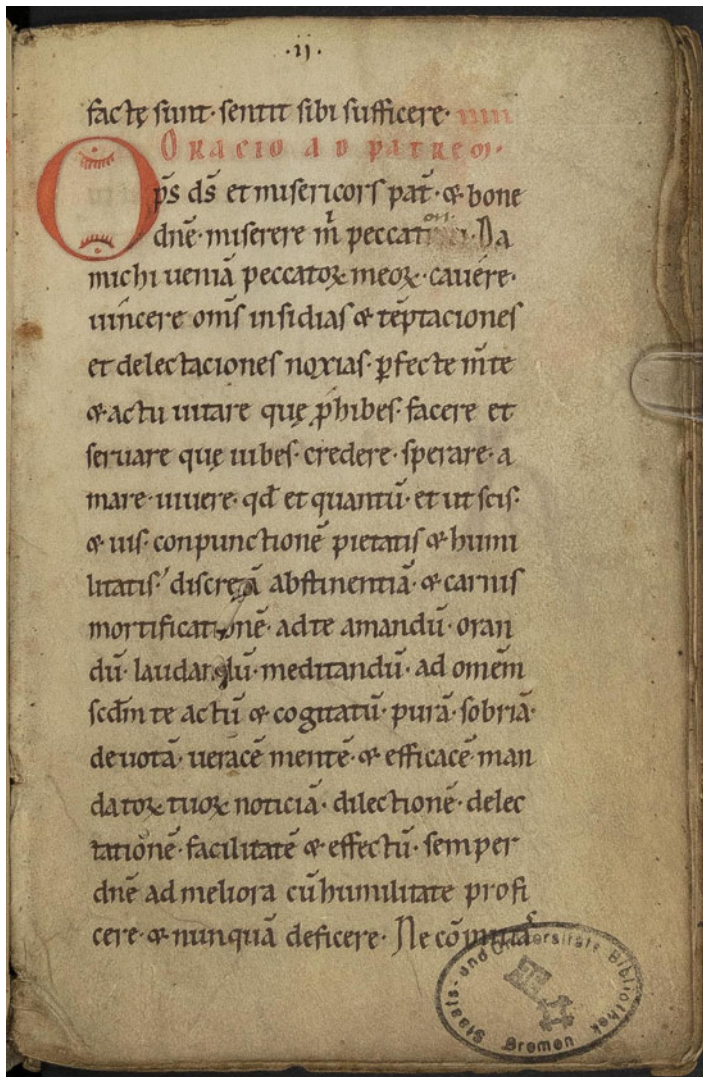 ·ij·
factę sunt· sentit sibi sufficere·
Oracio ad patrem·
Ōps ds̄ et misericors pat̄· & bone
dnē· miserere m̄ peccat Da
michi ueniā peccatoꝝ meoꝝ· cauere·
uincere om̄s insidias & tēptaciones
et delectaciones noxias· ꝑfecte m̄te
& actu uitare quę ꝓhibes· facere et
seruare quę iubes· credere· sperare· a
mare· uiuere· qd̄ et quantū· et ut scis·
& uis· conpunctionē pietatis & humi
litatis· discretā abstinentiā· & carnis
mortificationē· ad te amandū· oran
dū· laudandū· meditandū· ad omēm
scd̄m te actū & cogitatū· purā· sobriā·
deuotā· ueracē mentē· & efficacē· man
datoꝝ tuoꝝ noticiā· dilectionē· delec
tationē· facilitatē & effectū· semper
dnē ad meliora cū humilitate profi
cere· & nunquā deficere· Ne cōmitta
Staats- und Universitäts Bibliothek
Bremen